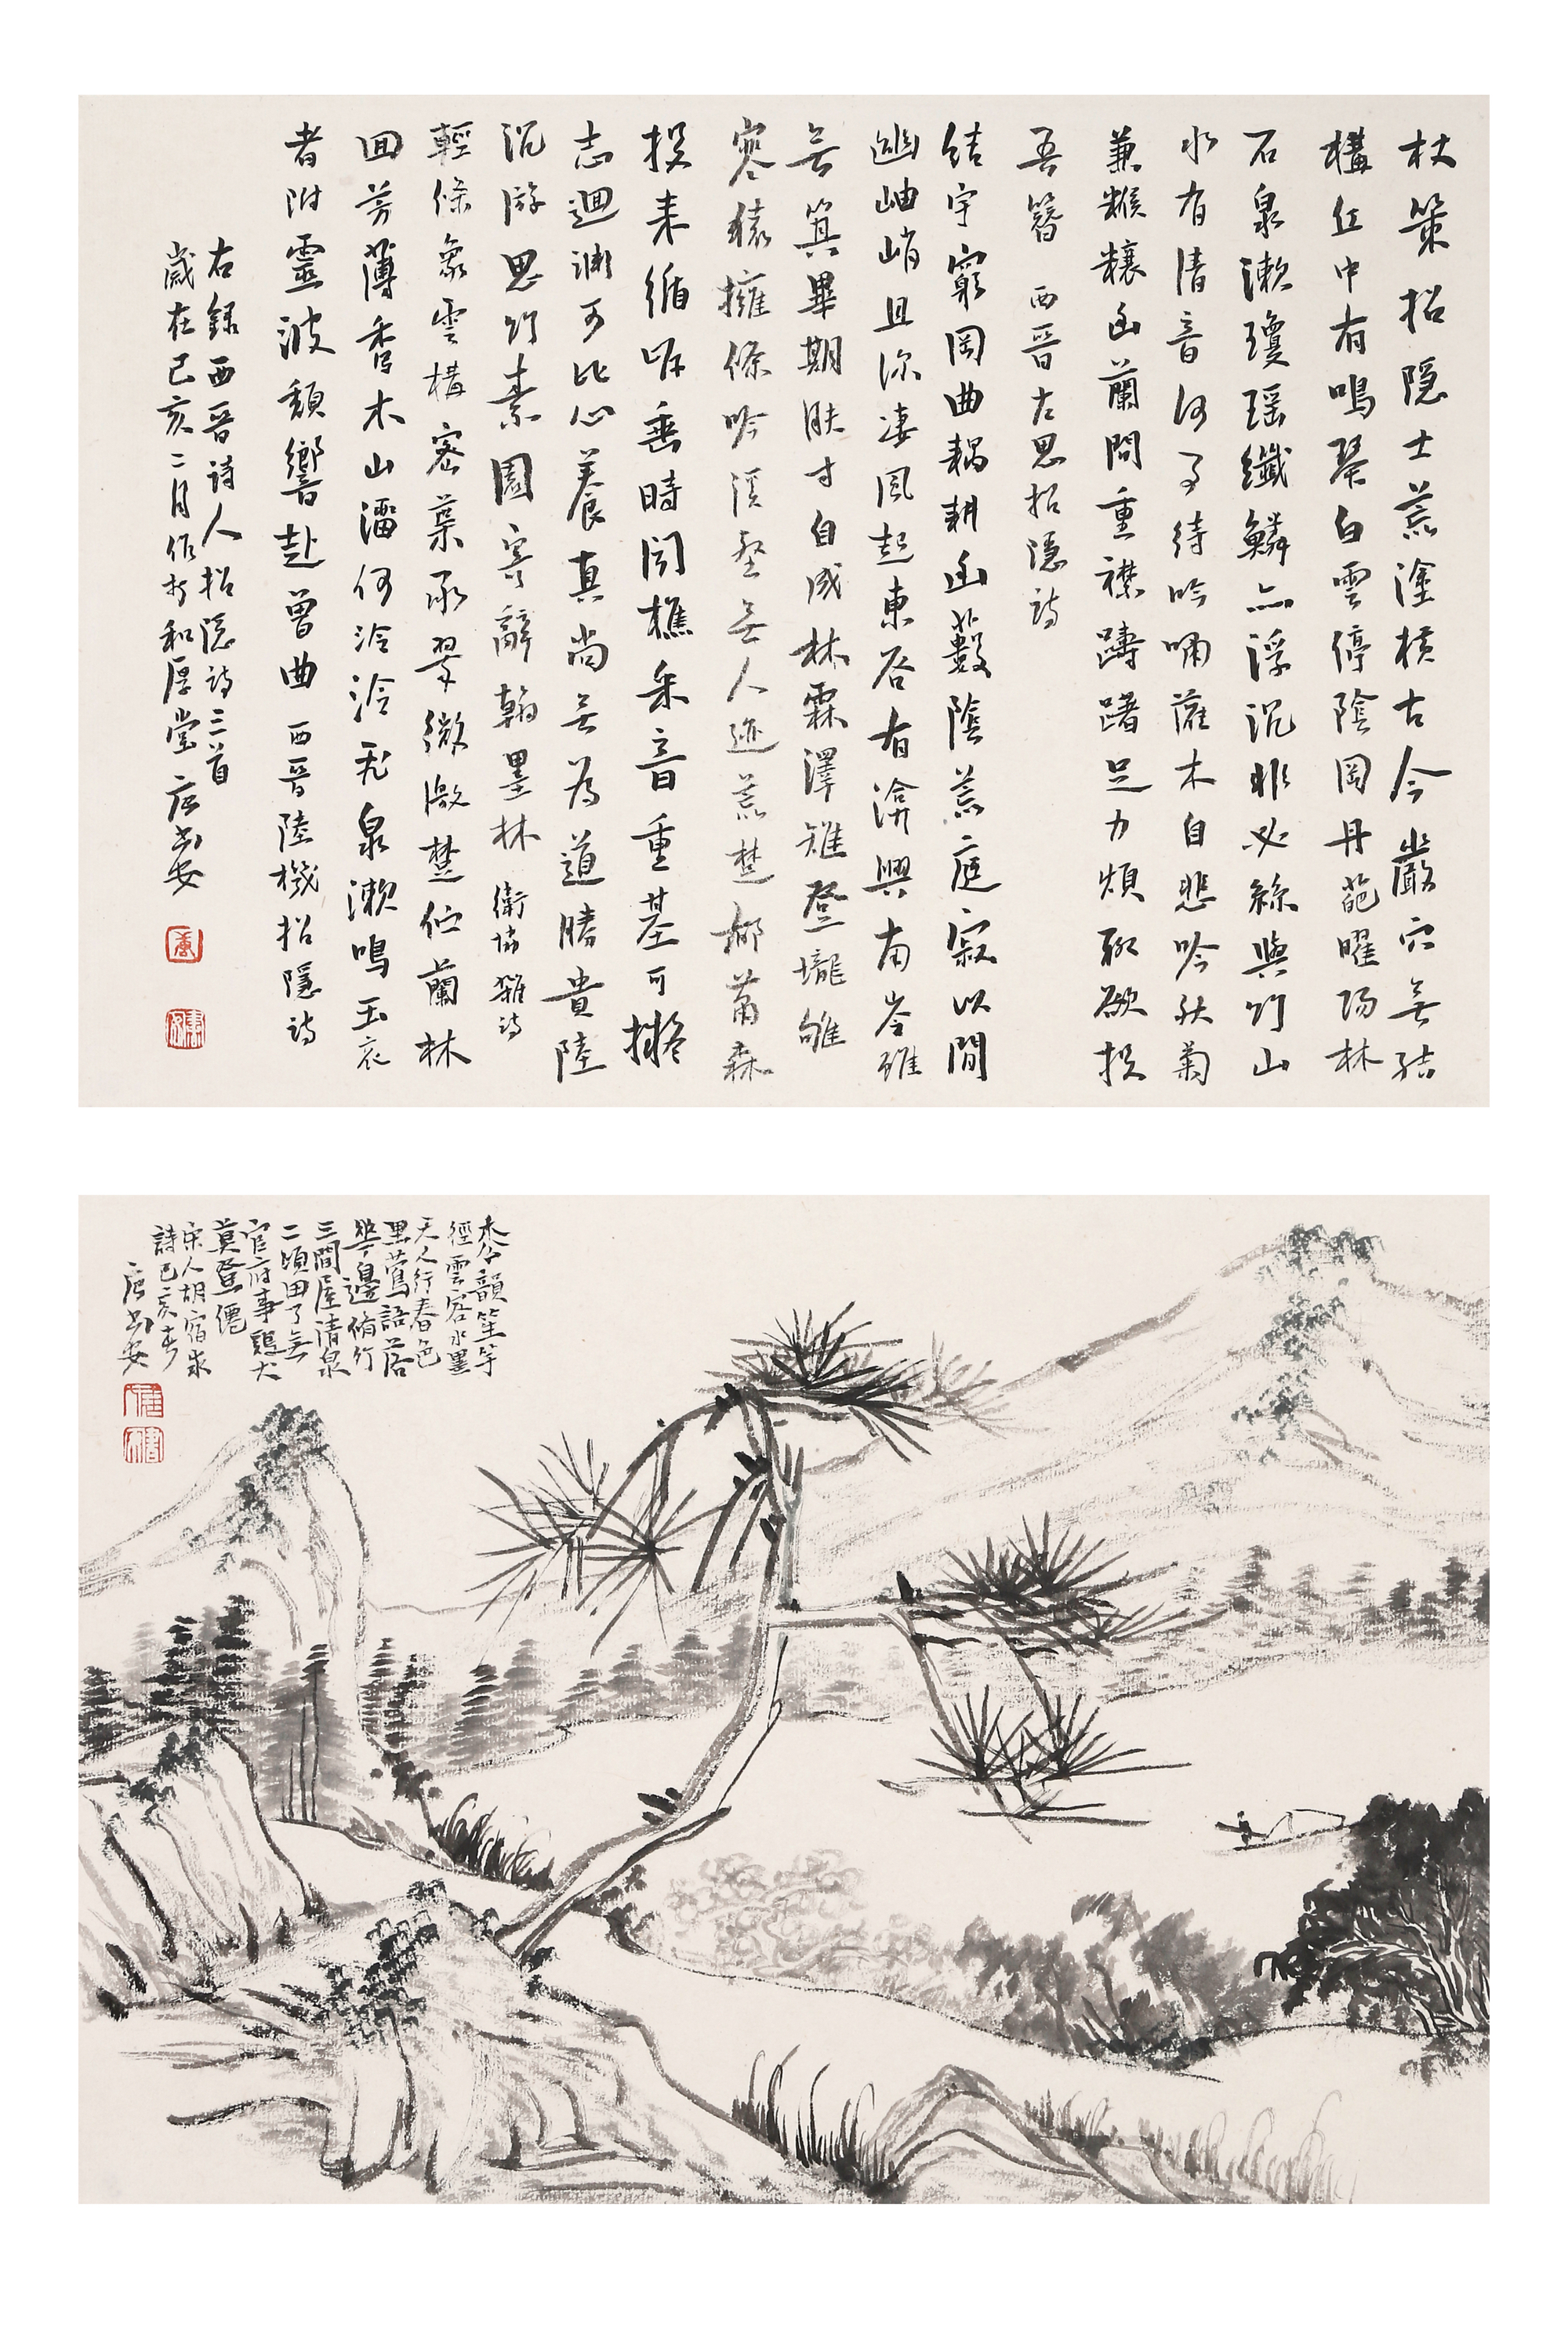 杖策招隐士荒塗横古今巖穴無結
構丘中有鳴琴白雲停陰岡丹葩曜陽林
石泉漱瓊瑶纖鱗亦浮沉非必絲與竹山
水有清音何事待吟嘯灌木自悲吟秋菊
兼糇糧幽蘭間重襟躊躇足力煩聊欲投
吾簪 西晋左思招隐詩
結宇窮岡曲耦耕幽藪陰荒庭寂以閒
幽岫峭且深淒風起東谷有渰興南岑雖
無箕畢期膚寸自成林霖澤雉登壟雊
寒猿擁條吟溪壑無人迹荒楚鬱蕭森
投耒循岸垂時聞樵采音重基可擬
志迴淵可比心養真尚無為道勝貴陸
沉游思竹素園寄辭翰墨林 衛協雜詩
輕條象雲構密葉承翠微激楚佇蘭林
回芳薄秀木山溜何泠泠飛泉漱鳴玉哀
者附靈波頹響赴曾曲 西晋陸機招隐詩
右録西晋詩人招隐詩三首
歲在己亥二月作於和厚堂唐書安
松韻笙竽
徑雲容水墨
天人行春色
里鶯語落
華邊脩竹
三間屋清泉
二頃田了無
官府事鷄犬
莫登僊
宋人胡宿
詩己亥春
唐書安